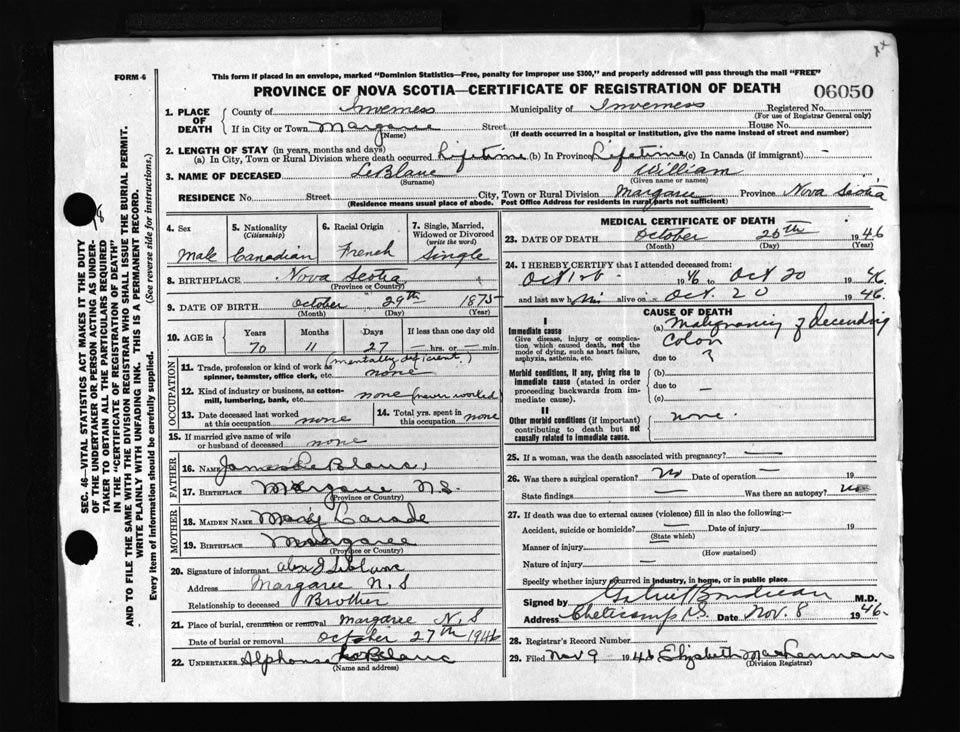 FORM 6
This form if placed in an envelope, marked "Dominion Statistics—Free, penalty for improper use $300," and properly addressed will pass through the mail "FREE"
PROVINCE OF NOVA SCOTIA—CERTIFICATE OF REGISTRATION OF DEATH 06050
SEC. 46—VITAL STATISTICS ACT MAKES IT THE DUTY
OF THE UNDERTAKER OR PERSON ACTING AS UNDER-
TAKER TO OBTAIN ALL THE PARTICULARS REQUIRED
IN THE "CERTIFICATE OF REGISTRATION OF DEATH"
AND TO FILE THE SAME WITH THE DIVISION REGISTRAR WHO SHALL ISSUE THE BURIAL PERMIT.
WRITE PLAINLY WITH UNFADING INK. THIS IS A PERMANENT RECORD.
Every item of information should be carefully supplied. (See reverse side for instructions.)
1. PLACE OF DEATH
County of Inverness Municipality of Inverness Registered No.
(For use of Registrar General only)
If in City or Town Margaree Street House No.
(Name) (If death occurred in a hospital or institution, give the name instead of street and number)
2. LENGTH OF STAY (in years, months and days)
(a) In City, Town or Rural Division where death occurred Lifetime (b) In Province Lifetime (c) In Canada (if immigrant) —
3. NAME OF DECEASED LeBlanc William
(Surname) (Given name or names)
RESIDENCE No. Street City, Town or Rural Division Margaree Province Nova Scotia
(Residence means usual place of abode. Post Office Address for residents in rural parts not sufficient)
4. Sex
Male
5. Nationality
(Citizenship)
Canadian
6. Racial Origin
French
7. Single, Married,
Widowed or Divorced
(write the word)
Single
8. BIRTHPLACE Nova Scotia
(Province or Country)
9. DATE OF BIRTH October 29th 1875
(Month) (Day) (Year)
10. AGE in
Years Months Days If less than one day old
70 11 27 — hrs. or — min.
OCCUPATION
(mentally deficient)
11. Trade, profession or kind of work as
spinner, teamster, office clerk, etc. none
12. Kind of industry or business, as cotton-
mill, lumbering, bank, etc. none (never worked)
13. Date deceased last worked
at this occupation none
14. Total yrs. spent in
this occupation none
15. If married give name of wife
or husband of deceased none
FATHER
16. NAME James LeBlanc,
17. BIRTHPLACE Margaree N.S.
(Province or Country)
MOTHER
18. MAIDEN NAME Mary
19. BIRTHPLACE Margaree
(Province or Country)
20. Signature of informant Alex J LeBlanc
Address Margaree N.S
Relationship to deceased Brother
21. Place of burial, cremation or removal Margaree N.S
Date of burial or removal October 27th 1946
22. UNDERTAKER Alphonse LeBlanc
(Name and address)
MEDICAL CERTIFICATE OF DEATH
23. DATE OF DEATH October 26th 1946
(Month) (Day) (Year)
24. I HEREBY CERTIFY that I attended deceased from:
46 to Oct 20 1946
and last saw him alive on Oct. 20 1946.
CAUSE OF DEATH
I
Immediate cause
Give disease, injury or complica-
tion which caused death, not the
mode of dying, such as heart failure,
asphyxia, asthenia, etc.
(a) Malignancy of Decending
Colon
due to ?
Morbid conditions, if any, giving rise to
immediate cause (stated in order
proceeding backwards from im-
mediate cause).
(b)
due to —
(c)
II
Other morbid conditions (if important)
contributing to death but not
causally related to immediate cause.
none.
25. If a woman, was the death associated with pregnancy? —
26. Was there a surgical operation? No Date of operation — 19
State findings — Was there an autopsy? no
27. If death was due to external causes (violence) fill in also the following:
Accident, suicide or homicide? — Date of injury 19
(State which)
Manner of injury
(How sustained)
Nature of injury —
Specify whether injury occurred in industry, in home, or in public place
Signed by Gabriel Boudreau M.D.
Address Cheticamp N.S. Date Nov. 8 1946.
28. Registrar's Record Number
29. Filed Nov 9 1946 Elizabeth MacLennan
(Division Registrar)